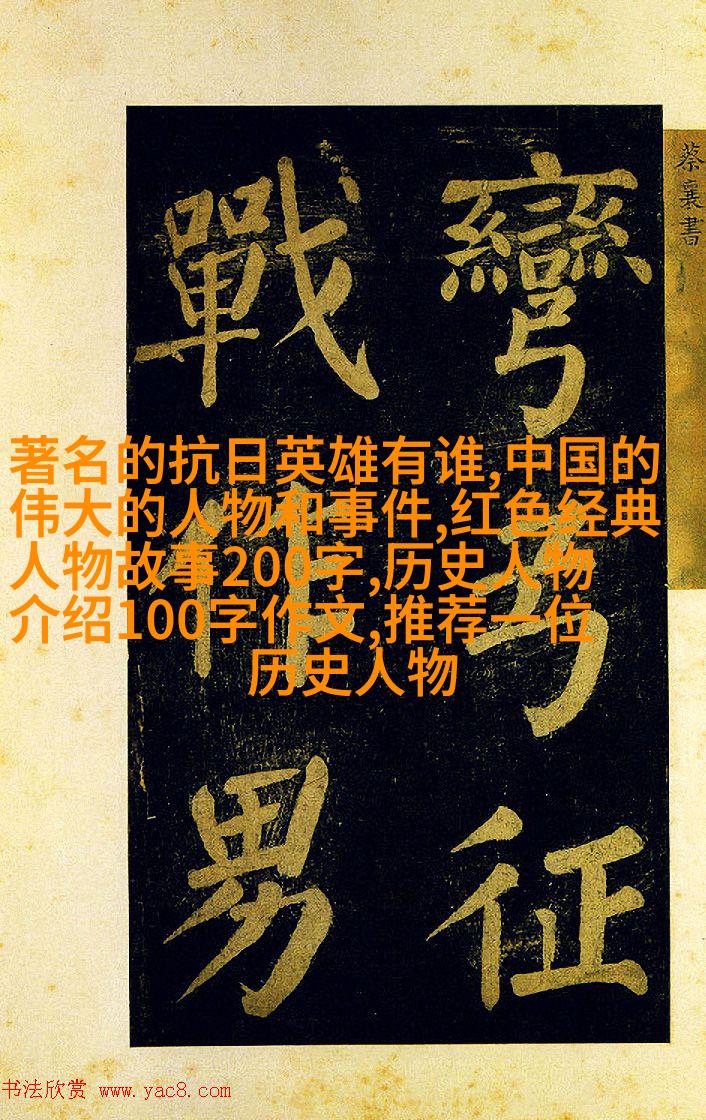 蔡襄書
彎弓征
戰作男
著名的抗日英雄有谁,中国的
伟大的人物和事件,红色经典
人物故事200字,历史人物
介绍100字作文,推荐一位
历史人物
书法欣赏 www.yac8.com